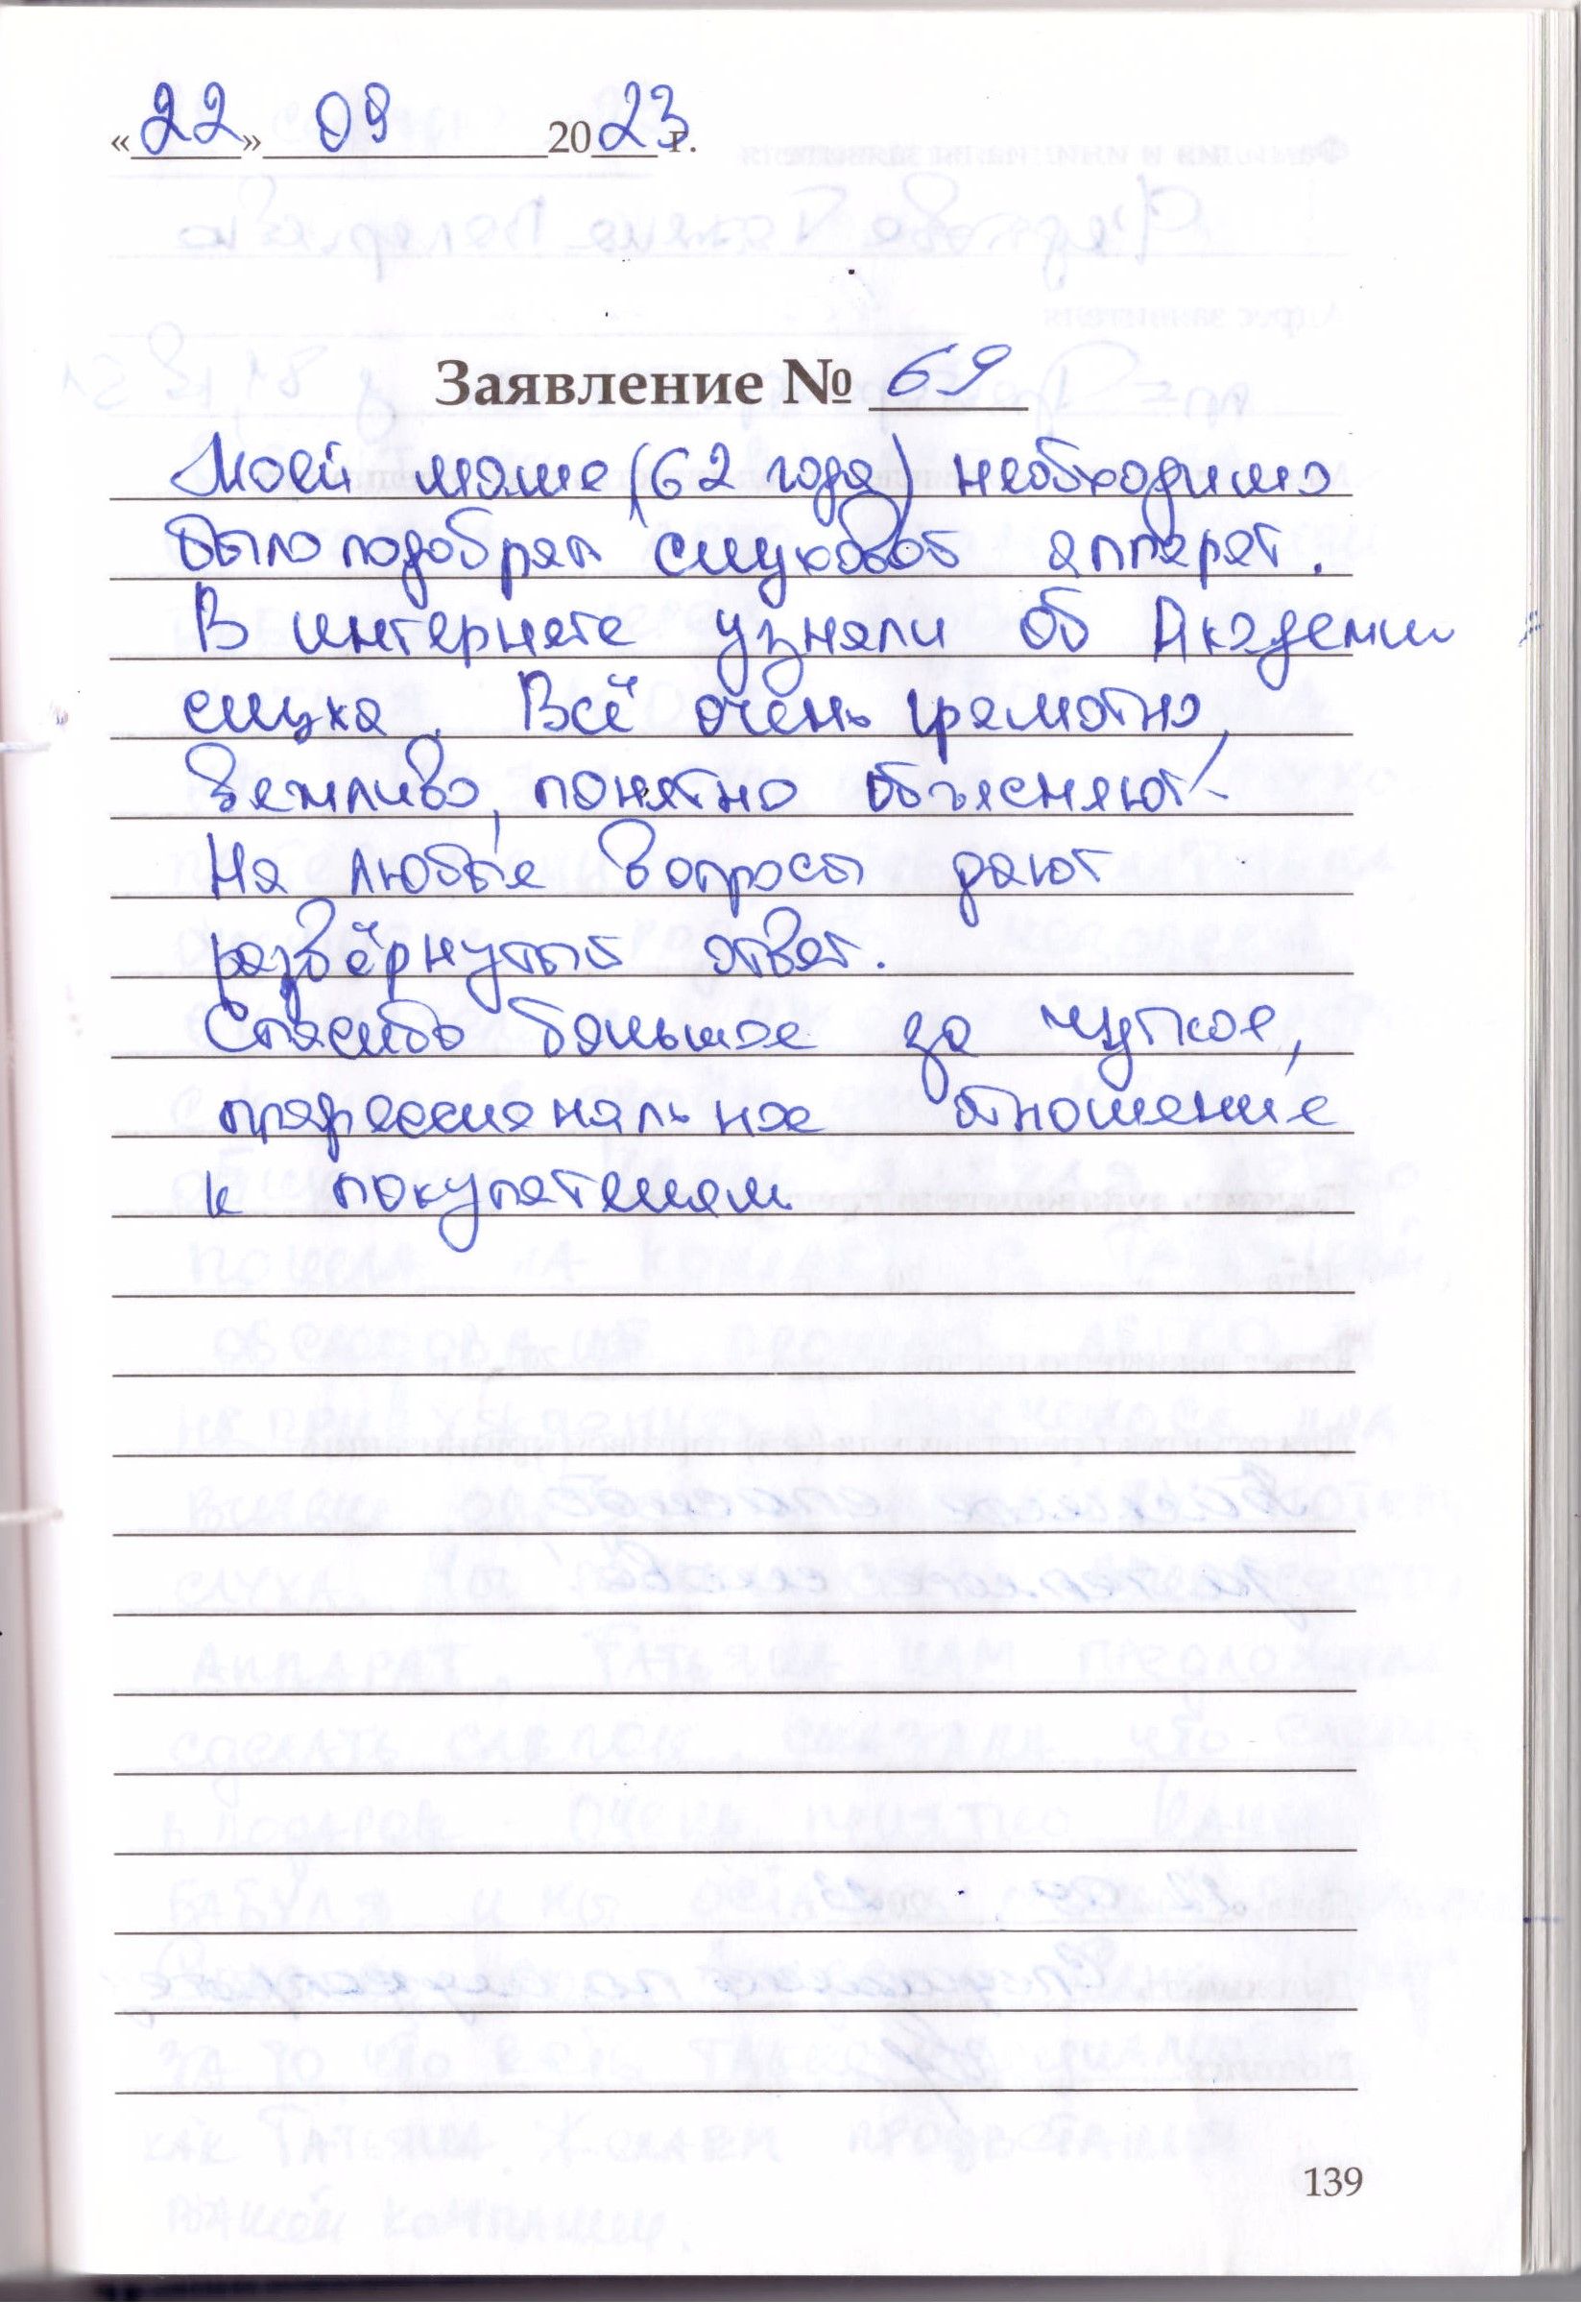 «22» 09 2023 г.
Заявление № 69
Моей маме (62 года) необходимо
было подобрать слуховой аппарат.
В интернете узнали об Академии
слуха. Всё очень грамотно,
вежливо, понятно объясняют!
На любые вопросы дают
развёрнутый ответ.
Спасибо большое за чуткое,
профессиональное отношение
к покупателям
139